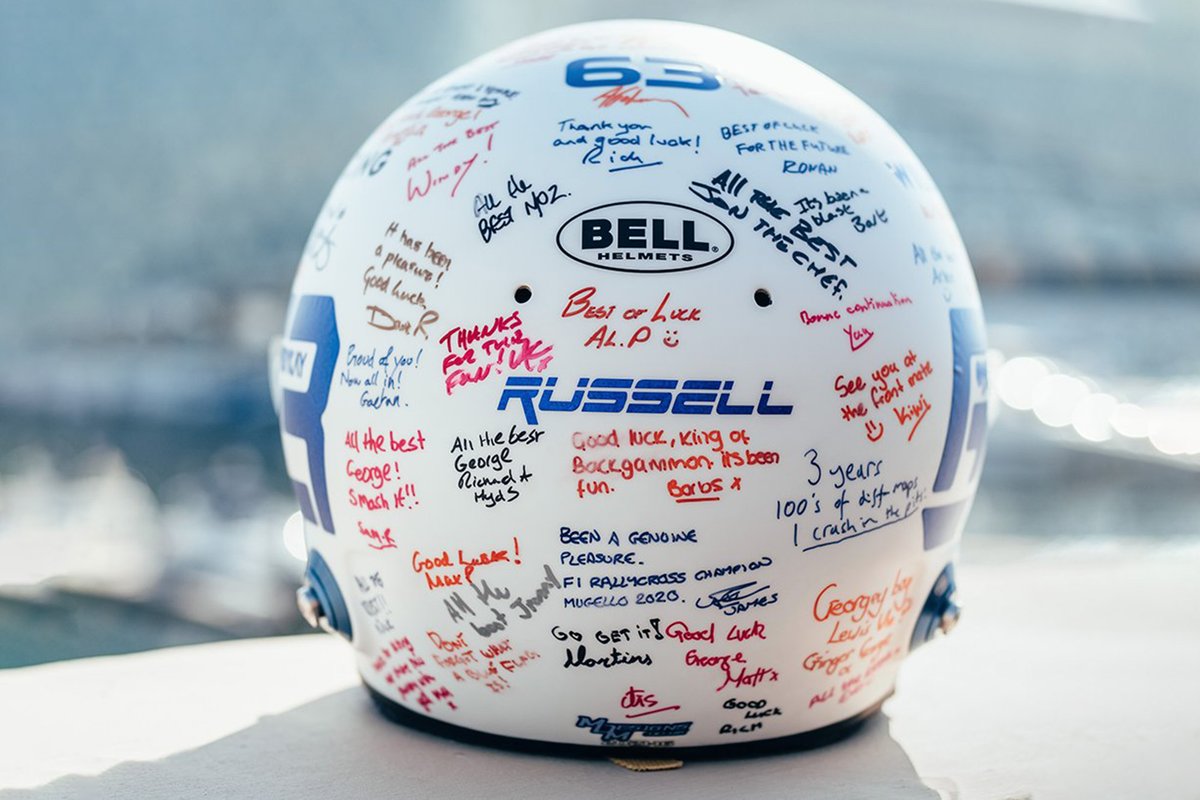 63
Thank you
and good luck!
Rich
BEST OF LUCK
FOR THE FUTURE
RONAN
ALL THE BEST
WINDY!
All the
BEST MOZ.
BELL
HELMETS
All THE BEST
JON THE CHEF.
Its been a
blast
Bart
It has been
a pleasure!
Good luck,
Dave R
THANKS
FOR THE
FUN!
BEST OF LUCK
AL.P
Bonne continuation
Yan
Proud of you!
Now all in!
Gaetan.
RUSSELL
See you at
the front mate
Kiwi
All the best
George!
Smash it!!
Sam.R
All the best
George
Richard
Hyds
Good luck, King of
Backgammon. its been
fun.
Barbs x
3 years
100's of diff maps
1 crash in the pits!
Good Luck!
Max
All the
best Jonny
BEEN A GENUINE
PLEASURE.
F1 RALLYCROSS CHAMPION
MUGELLO 2020.
JAMES
Georgey boy
Lewis
Ginger George
or
DON'T
FORGET WHAT
A BLUE FLAG
IS!
GO GET IT!
Martins
Good Luck
George
Matt x
GOOD
LUCK
RICH